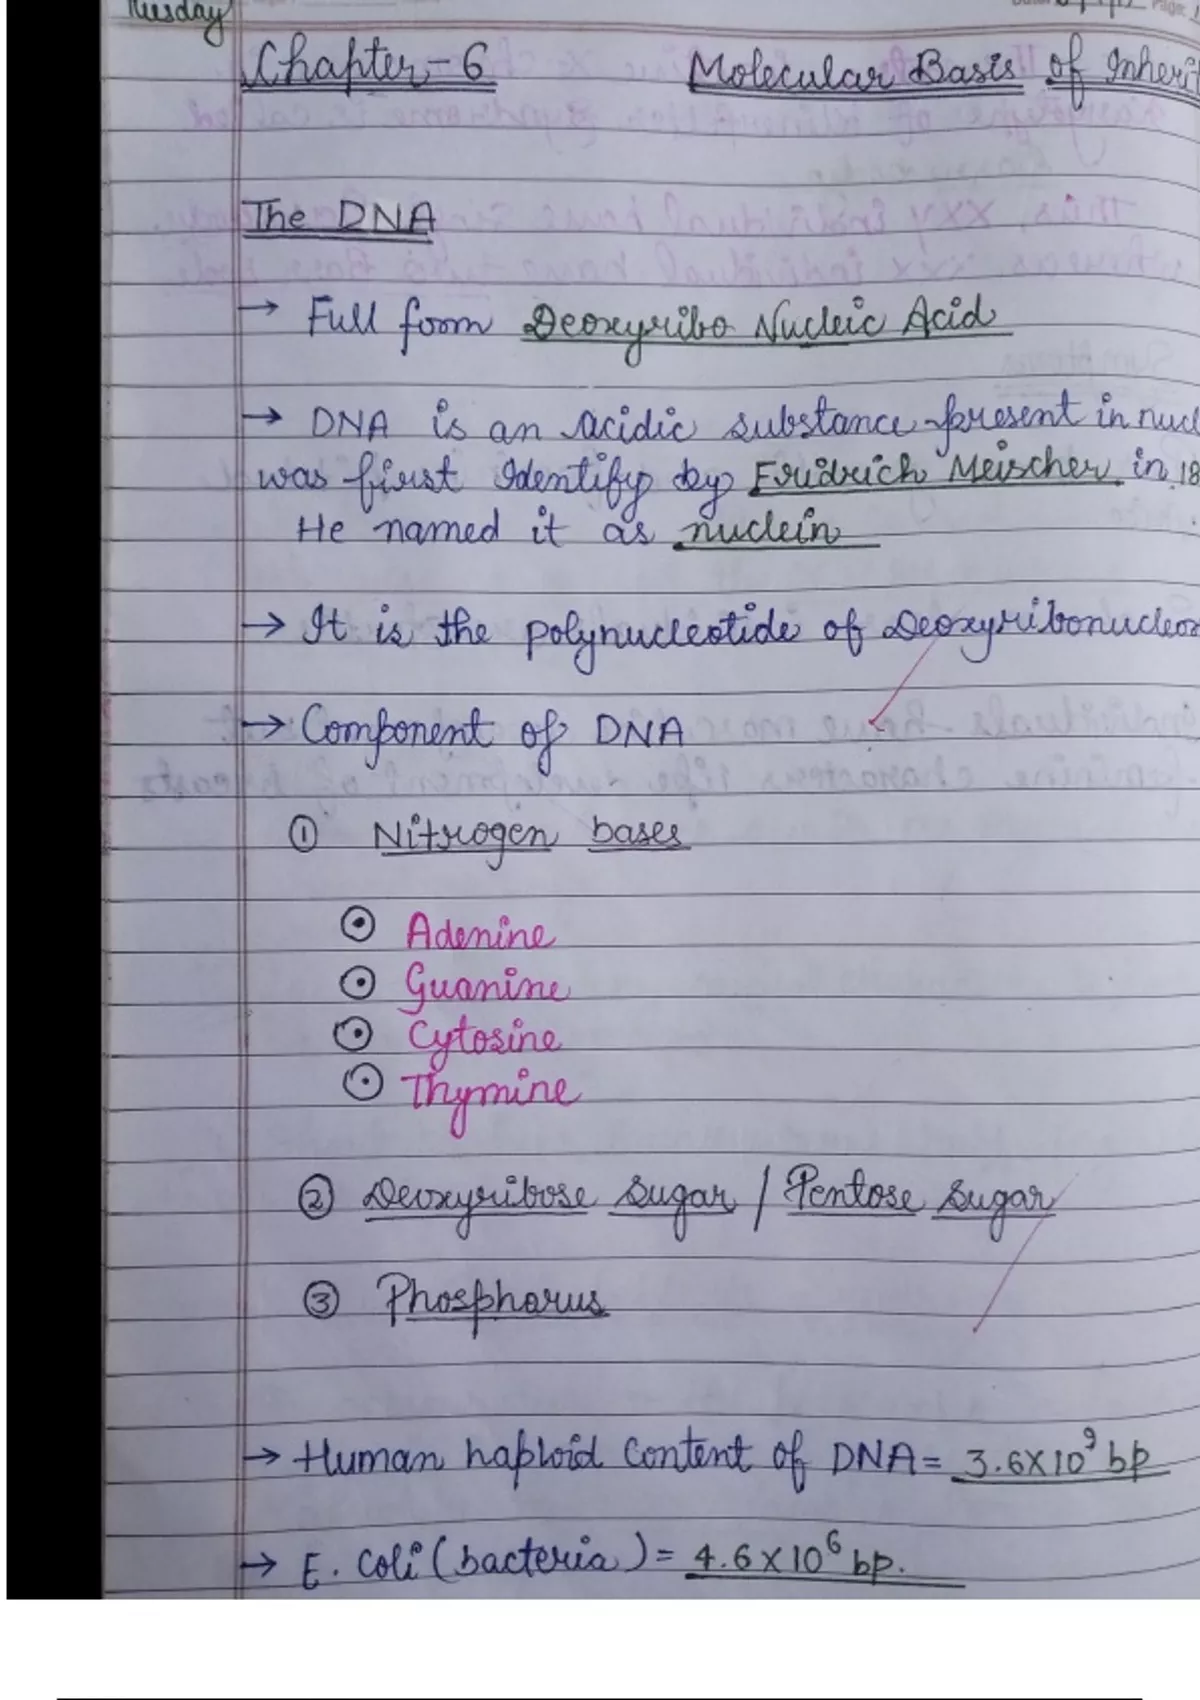 Tuesday
Chapter-6 Molecular Basis of Inherit
The DNA
→ Full form Deoxyribo Nucleic Acid
→ DNA is an acidic substance present in nucl
was first Identify by Fridrich Meischer in 18
He named it as nuclein
→ It is the polynucleotide of Deoxyribonucleo
→ Component of DNA
① Nitrogen bases
⊙ Adenine
⊙ Guanine
⊙ Cytosine
⊙ Thymine
② Deoxyribose sugar / Pentose sugar
③ Phosphorus
→ Human haploid content of DNA= 3.6X10⁹ bp
→ E. Coli (bacteria)= 4.6X10⁶ bp.